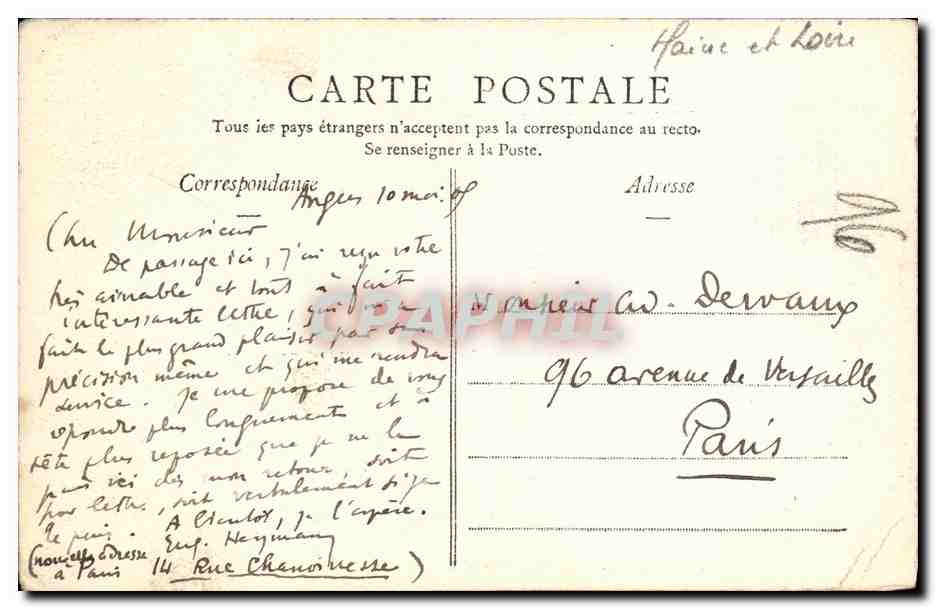 Maine et Loire
CARTE POSTALE
Tous les pays étrangers n'acceptent pas la correspondance au recto.
Se renseigner à la Poste.
Correspondance
Adresse
Angers 10 mai
Cher Monsieur
De passage ici, j'ai reçu votre
très aimable et tout à fait
intéressante lettre, qui m'a
fait le plus grand plaisir par sa
précision même et qui me rendra
service. Je me propose de vous
répondre plus longuement et à
tête plus reposée que je ne le
puis ici dès mon retour, soit
par lettre, soit verbalement si je
le puis.
A bientôt, je l'espère.
Eug. Heymann
(nouvelle adresse
à Paris 14 Rue Chanoinesse)
Monsieur Ad. Dervaux
96 avenue de Versailles
Paris
CPAPHIL